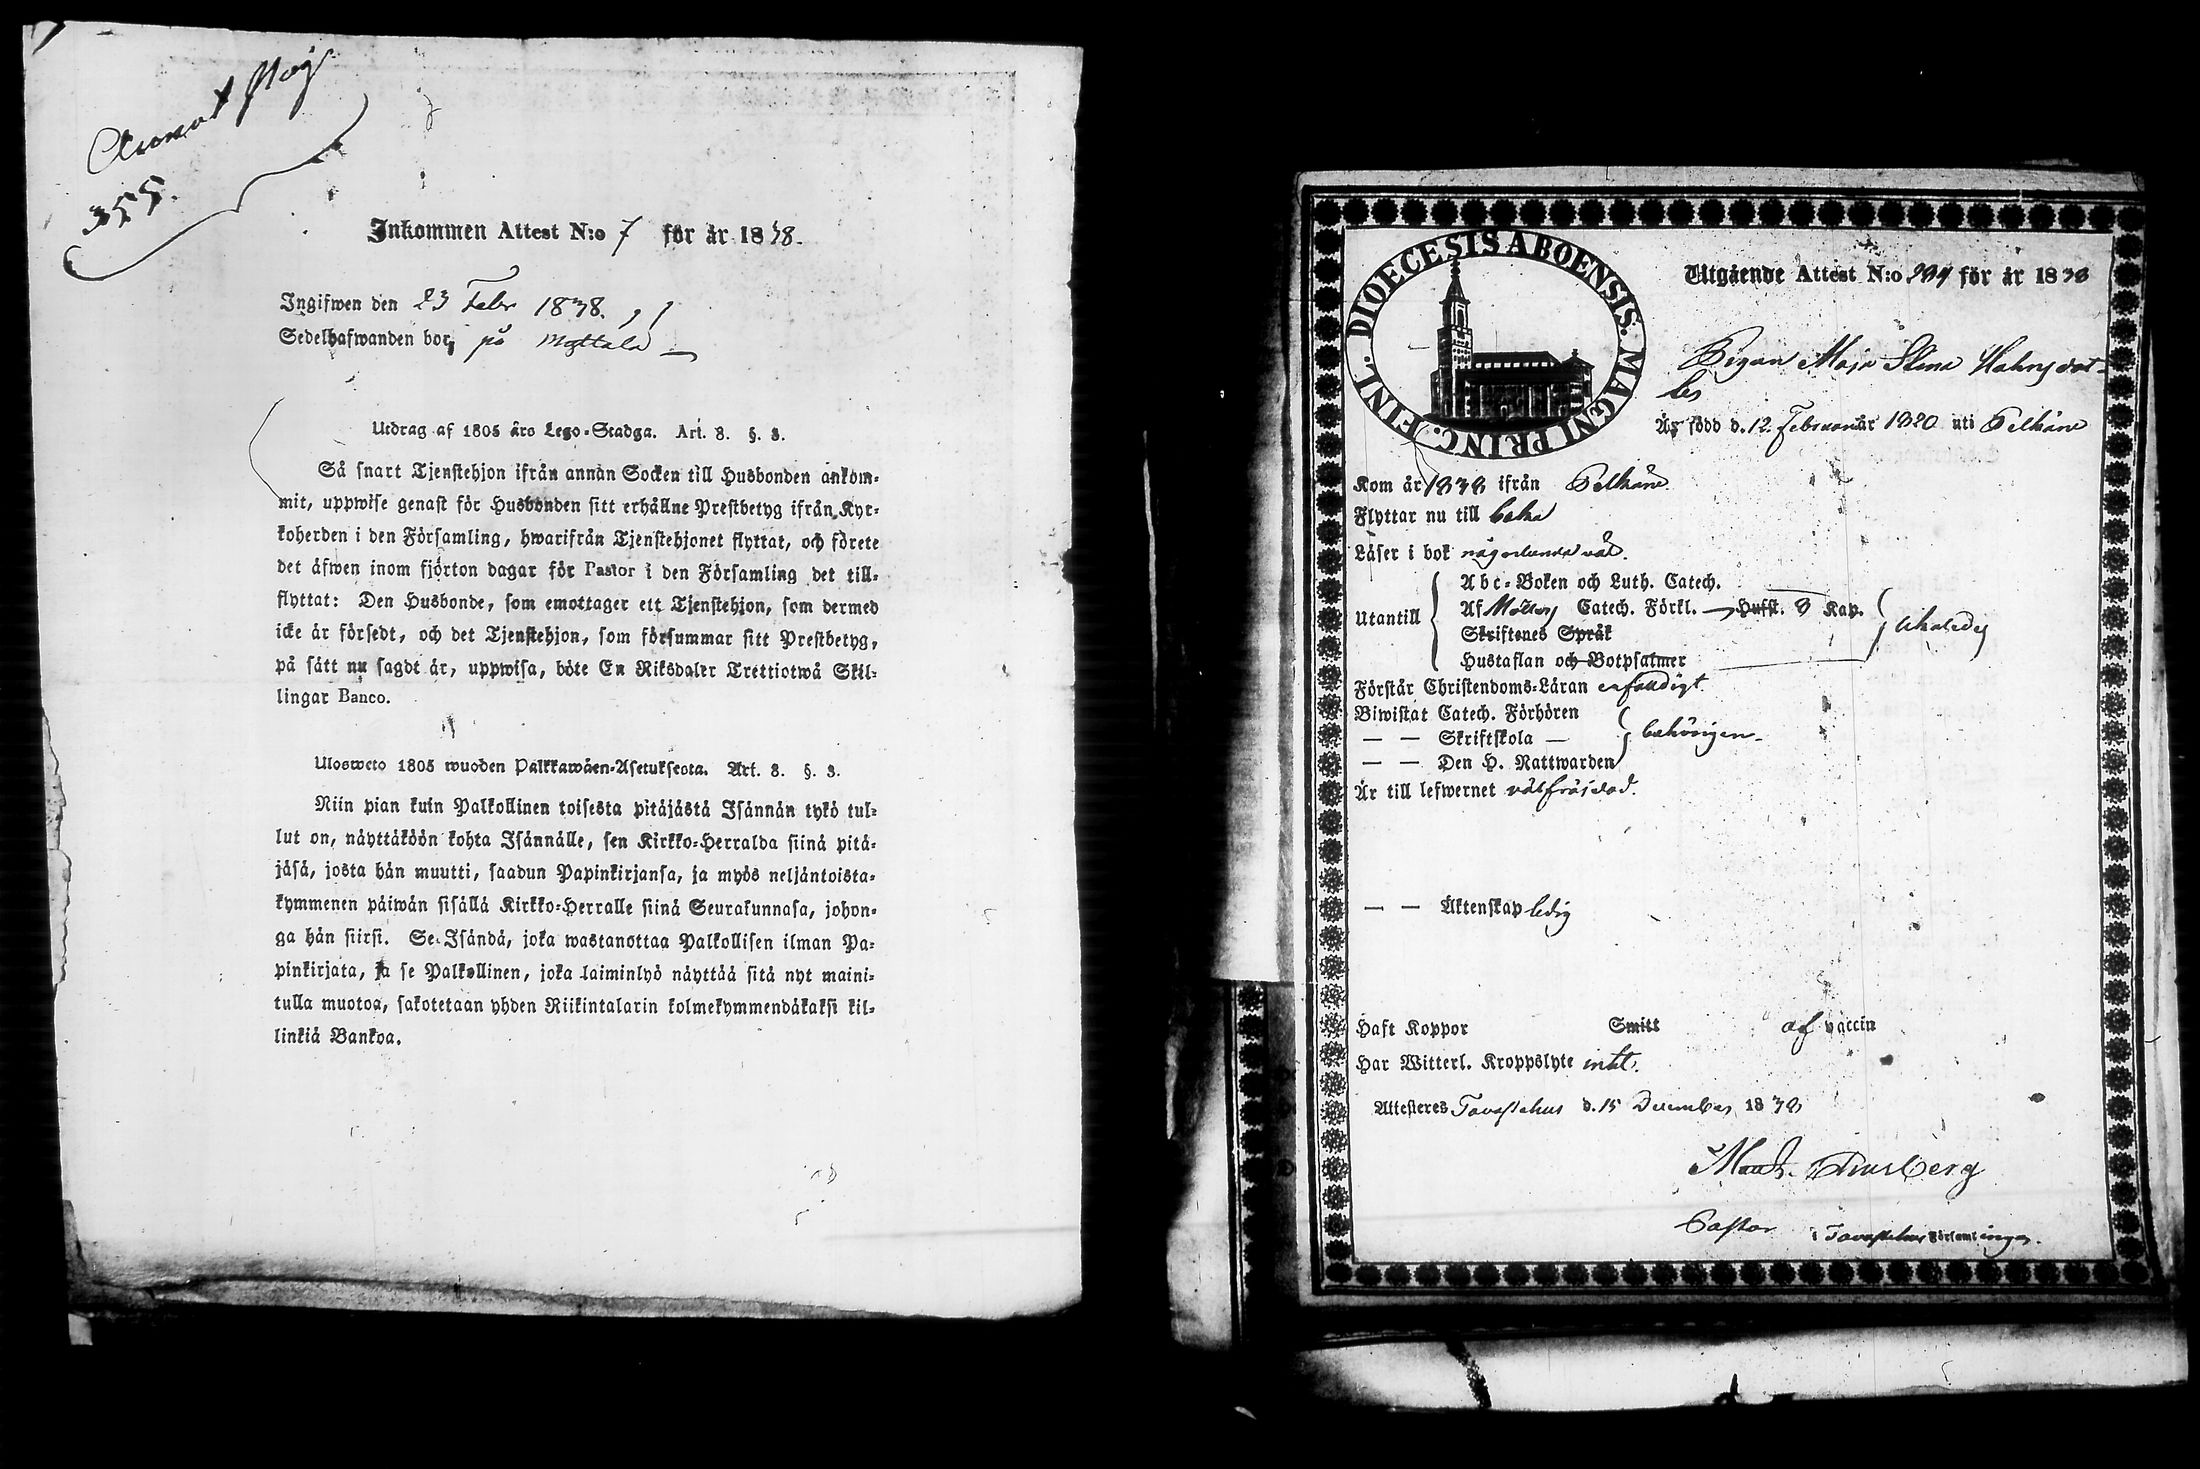 355.
Inkommen Attest N:o 7 för år 1838.
Ingifwen den 23 Febr 1838.
Sedelhafwanden bor på Mattala
Utdrag af 1805 års Lego-Stadga. Art. 8. §. 3.
Så snart Tjenstehjon ifrån annan Socken till Husbonden ankom-
mit, uppwise genast för Husbonden sitt erhållne Prestbetyg ifrån Kyr-
koherden i den Församling, hwarifrån Tjenstehjonet flyttat, och förete
det åfwen inom fjorton dagar för Pastor i den Församling det till-
flyttat: Den Husbonde, som emottager ett Tjenstehjon, som dermed
icke är försedt, och det Tjenstehjon, som försummar sitt Prestbetyg,
på sått nu sagdt är, uppwisa, böte En Riksdaler Trettiotwå Skil-
lingar Banco.
Ulosweto 1805 wuoden Palkkawäen-Asetuksesta. Art. 8. §. 3.
Niin pian kuin Palkollinen toisesta pitäjästä Isännän tykö tul-
lut on, näyttäköön kohta Isännälle, sen Kirkko-Herralda siinä pitä-
jäsä, josta hän muutti, saadun Papinkirjansa, ja myös neljäntoista-
kymmenen päiwän sisällä Kirkko-Herralle siinä Seurakunnasa, johon-
ga hän siirsi. Se Isändä, joka wastanottaa Palkollisen ilman Pa-
pinkirjata, ja se Palkollinen, joka laiminlyö näyttää sitä nyt maini-
tulla muotoa, sakotetaan yhden Riikintalarin kolmekymmendäkaksi kil-
linkiä Bankoa.
DIOECESIS ABOENSIS. MAGNI PRINC. FINL.
Utgående Attest N:o för år 1838
Pigan Maja Stina Hahnsdot-
ter
År född d. 12 Februari år 1820 uti Pelkäne
Kom år 1838 ifrån Pelkäne
Flyttar nu till
Läser i bok någorlunda väl.
Utantill
Abc-Boken och Luth. Catech.
Af Catech. Förkl. — Husst. 8 Kap.
Skriftenes Språk
Hustaflan och Botpsalmer
Förstår Christendoms-Läran enfaldigt
Biwistat Catech. Förhören
— — Skriftskola —
— — Den H. Nattwarden
behörigen
Är till lefwernet välfräjdad.
— — Äktenskap ledig
Haft Koppor Smitt af vaccin
Har Witterl. Kroppslyte intet.
Attesteres Tavastehus d. 15 December 1838
Pastor i Tavastehus Församlingar.